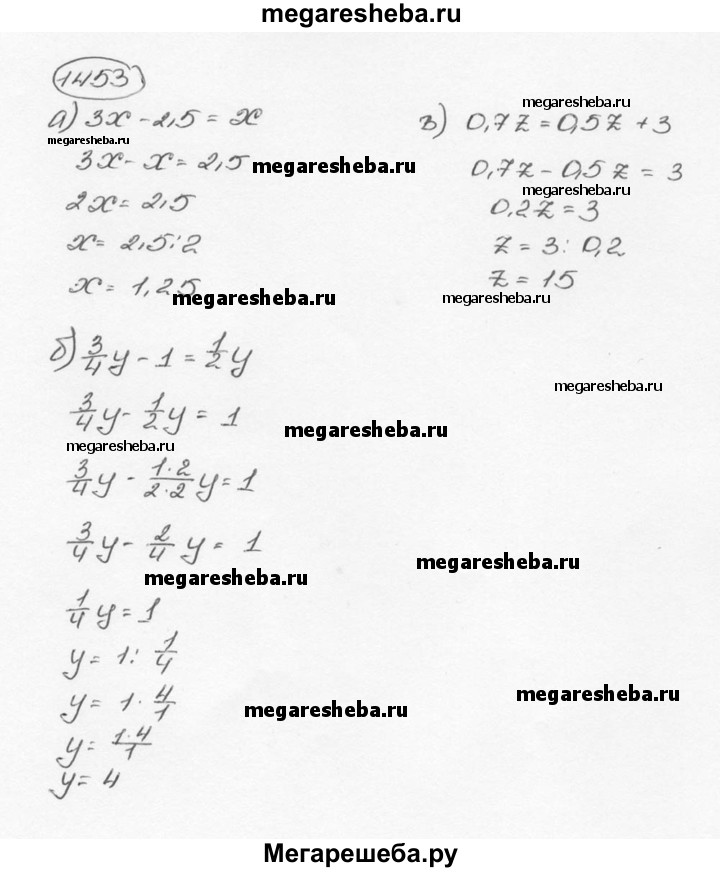 megaresheba.ru
1453
а) 3x - 2,5 = x
megaresheba.ru
3x - x = 2,5
megaresheba.ru
2x = 2,5
x = 2,5:2
x = 1,25
megaresheba.ru
megaresheba.ru
в) 0,7z = 0,5z + 3
0,7z - 0,5z = 3
megaresheba.ru
0,2z = 3
z = 3 : 0,2
z = 15
megaresheba.ru
б) 3/4 y - 1 = 1/2 y
megaresheba.ru
3/4 y - 1/2 y = 1
megaresheba.ru
megaresheba.ru
3/4 y - 1·2/2·2 y = 1
3/4 y - 2/4 y = 1
megaresheba.ru
megaresheba.ru
1/4 y = 1
y = 1 : 1/4
y = 1 · 4/1
megaresheba.ru
megaresheba.ru
y = 1·4/1
y = 4
Мегарешеба.ру